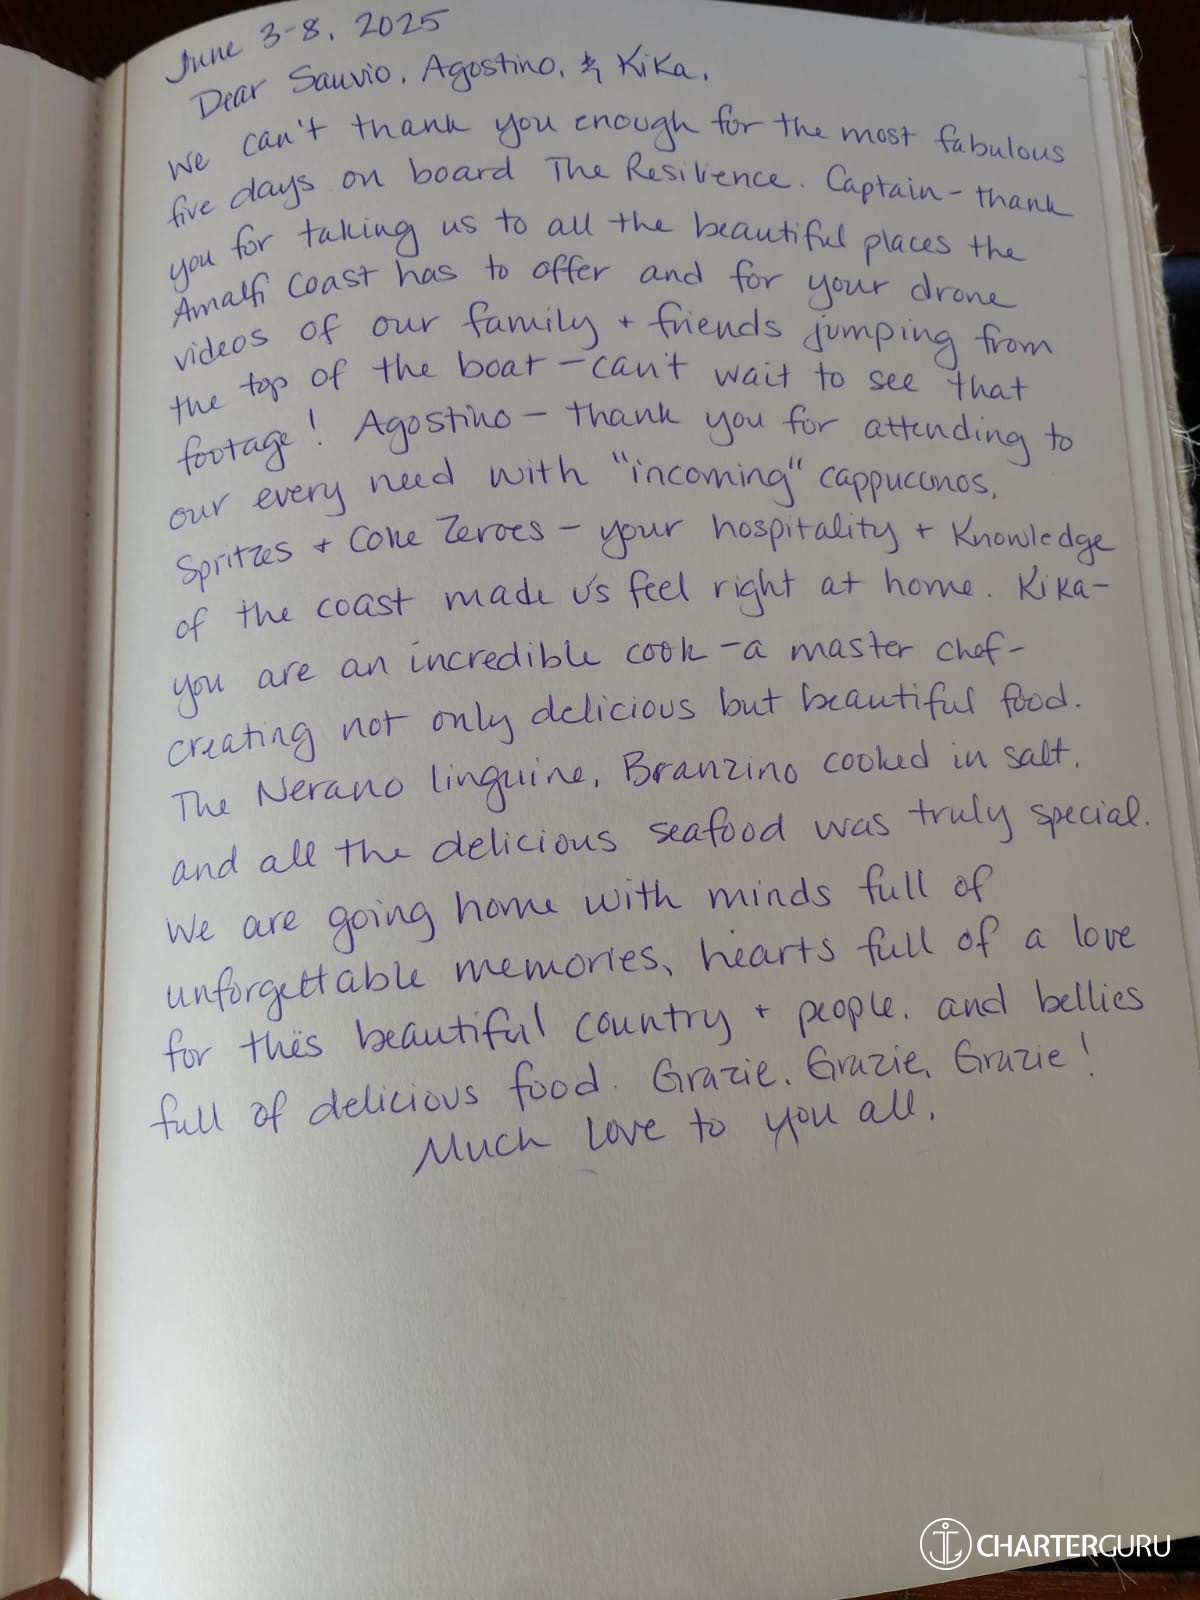 June 3-8, 2025
Dear Sauvio, Agostino, & Kika,
We can't thank you enough for the most fabulous
five days on board The Resilience. Captain - thank
you for taking us to all the beautiful places the
Amalfi Coast has to offer and for your drone
videos of our family + friends jumping from
the top of the boat - can't wait to see that
footage! Agostino - thank you for attending to
our every need with "incoming" cappucconos,
Spritzes + Coke Zeroes - your hospitality + Knowledge
of the coast made us feel right at home. Kika-
you are an incredible cook - a master chef-
creating not only delicious but beautiful food.
The Nerano linguine, Branzino cooked in salt,
and all the delicious seafood was truly special.
We are going home with minds full of
unforgettable memories, hearts full of a love
for this beautiful country + people, and bellies
full of delicious food. Grazie, Grazie, Grazie!
Much love to you all,
CHARTERGURU